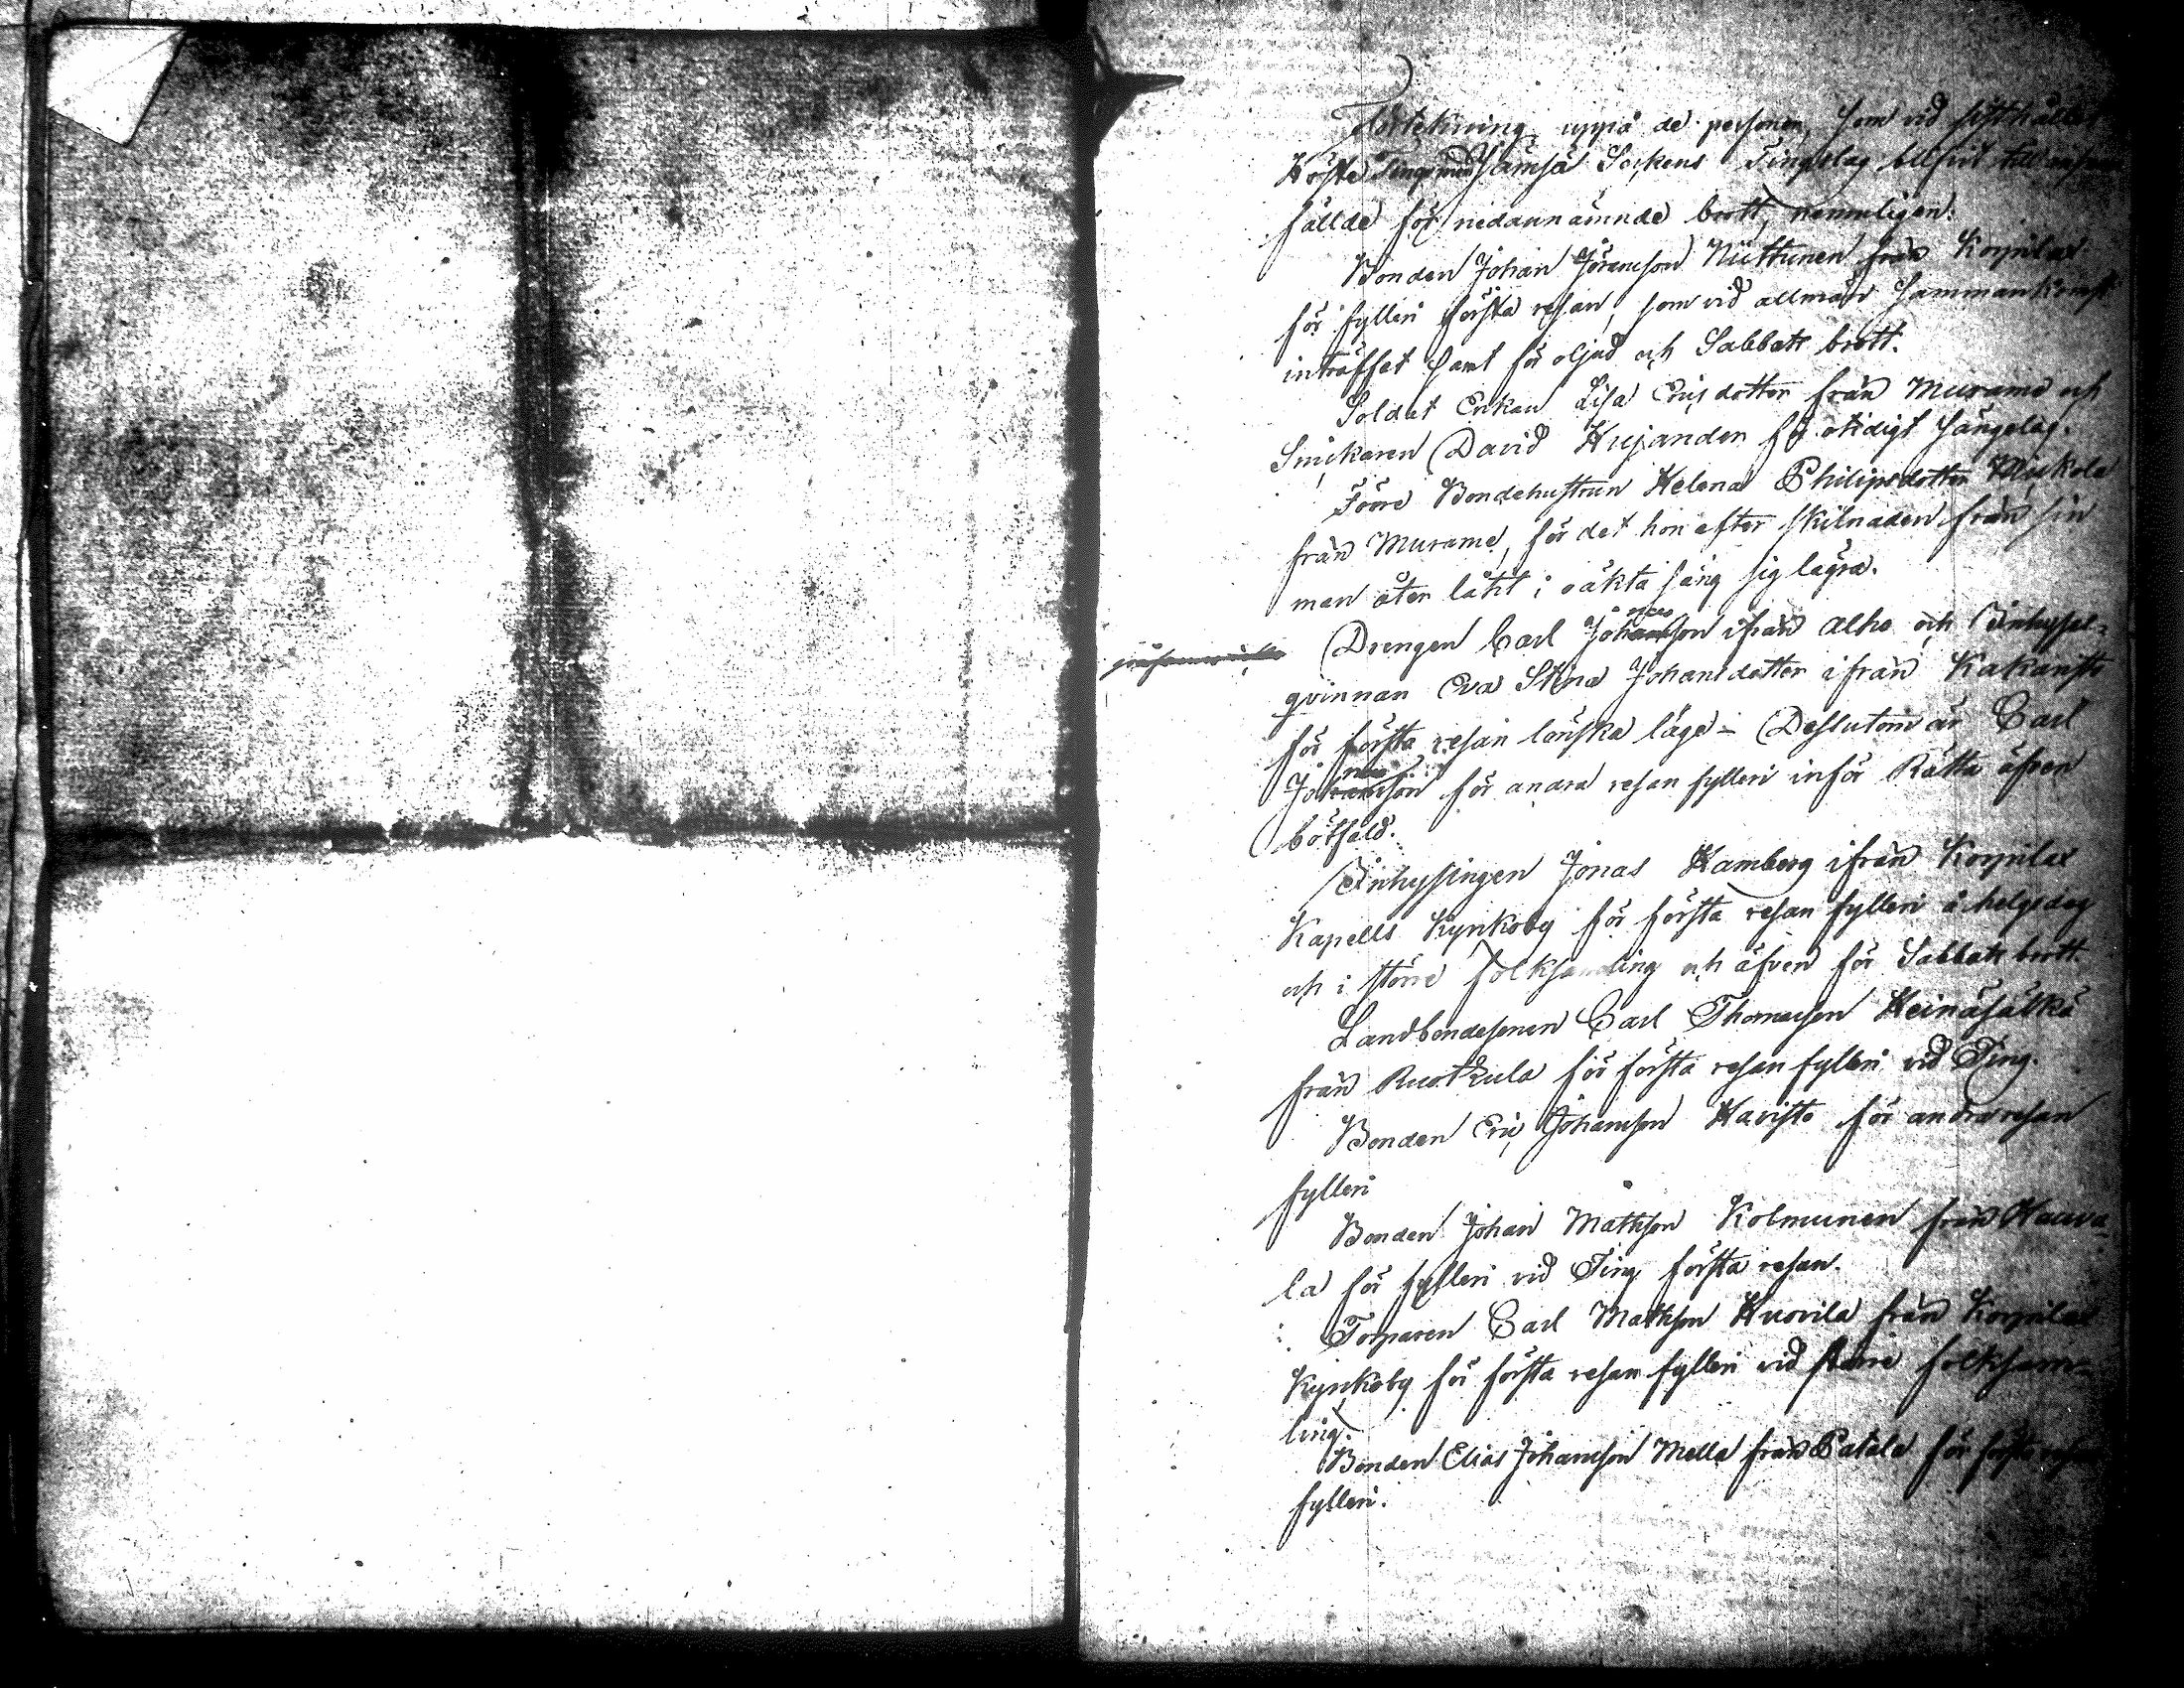 Förtekning uppå de personer, som vid sisthållne
Höste Ting med Jämsä Sockens Tingslag blifvit till
fällde för nedannämnde brott, nemmligen:
Bonden Johan Jöransson Niittunen från Korpilax
för fylleri första resan, som vid allmän Sammankomst
inträffat samt för oljud och Sabbats brott.
Soldat Enkan Lisa Ericsdotter från Murame och
Snickaren David Hujander för otidigt sängelag.
Förre Bondehustrun Helena Philipsdotter
från Murame, för det hon efter skilnaden från sin
man åter låtit i oäkta säng sig lägra.
Drengen Carl Johansson ifrån Alho och Inhyses-
qvinnan Eva Stina Johansdotter ifrån
för första resan lönska läge - Dessutom är Carl
Johansson för andra resan fylleri inför Rätta äfven
bötfäld.
Inhysingen Jonas Hamberg ifrån Korpilax
Kapells Kyrkoby för första resan fylleri å helgedag
och i större folksamling och äfven för Sabbats brott.
Landbondesonen Carl Thomasson Heinäsälkä
från Ruotkula för första resan fylleri vid Ting.
Bonden Eric Johansson Havisto för andra resan
fylleri
Bonden Johan Mathsson Kolmunen från
la för fylleri vid Ting första resan.
Torparen Carl Mathsson Huovila från Korpilax
Kyrkoby för första resan fylleri vid större folksam-
ling.
Bonden Elias Johansson Mella från Patala för första resan
fylleri.